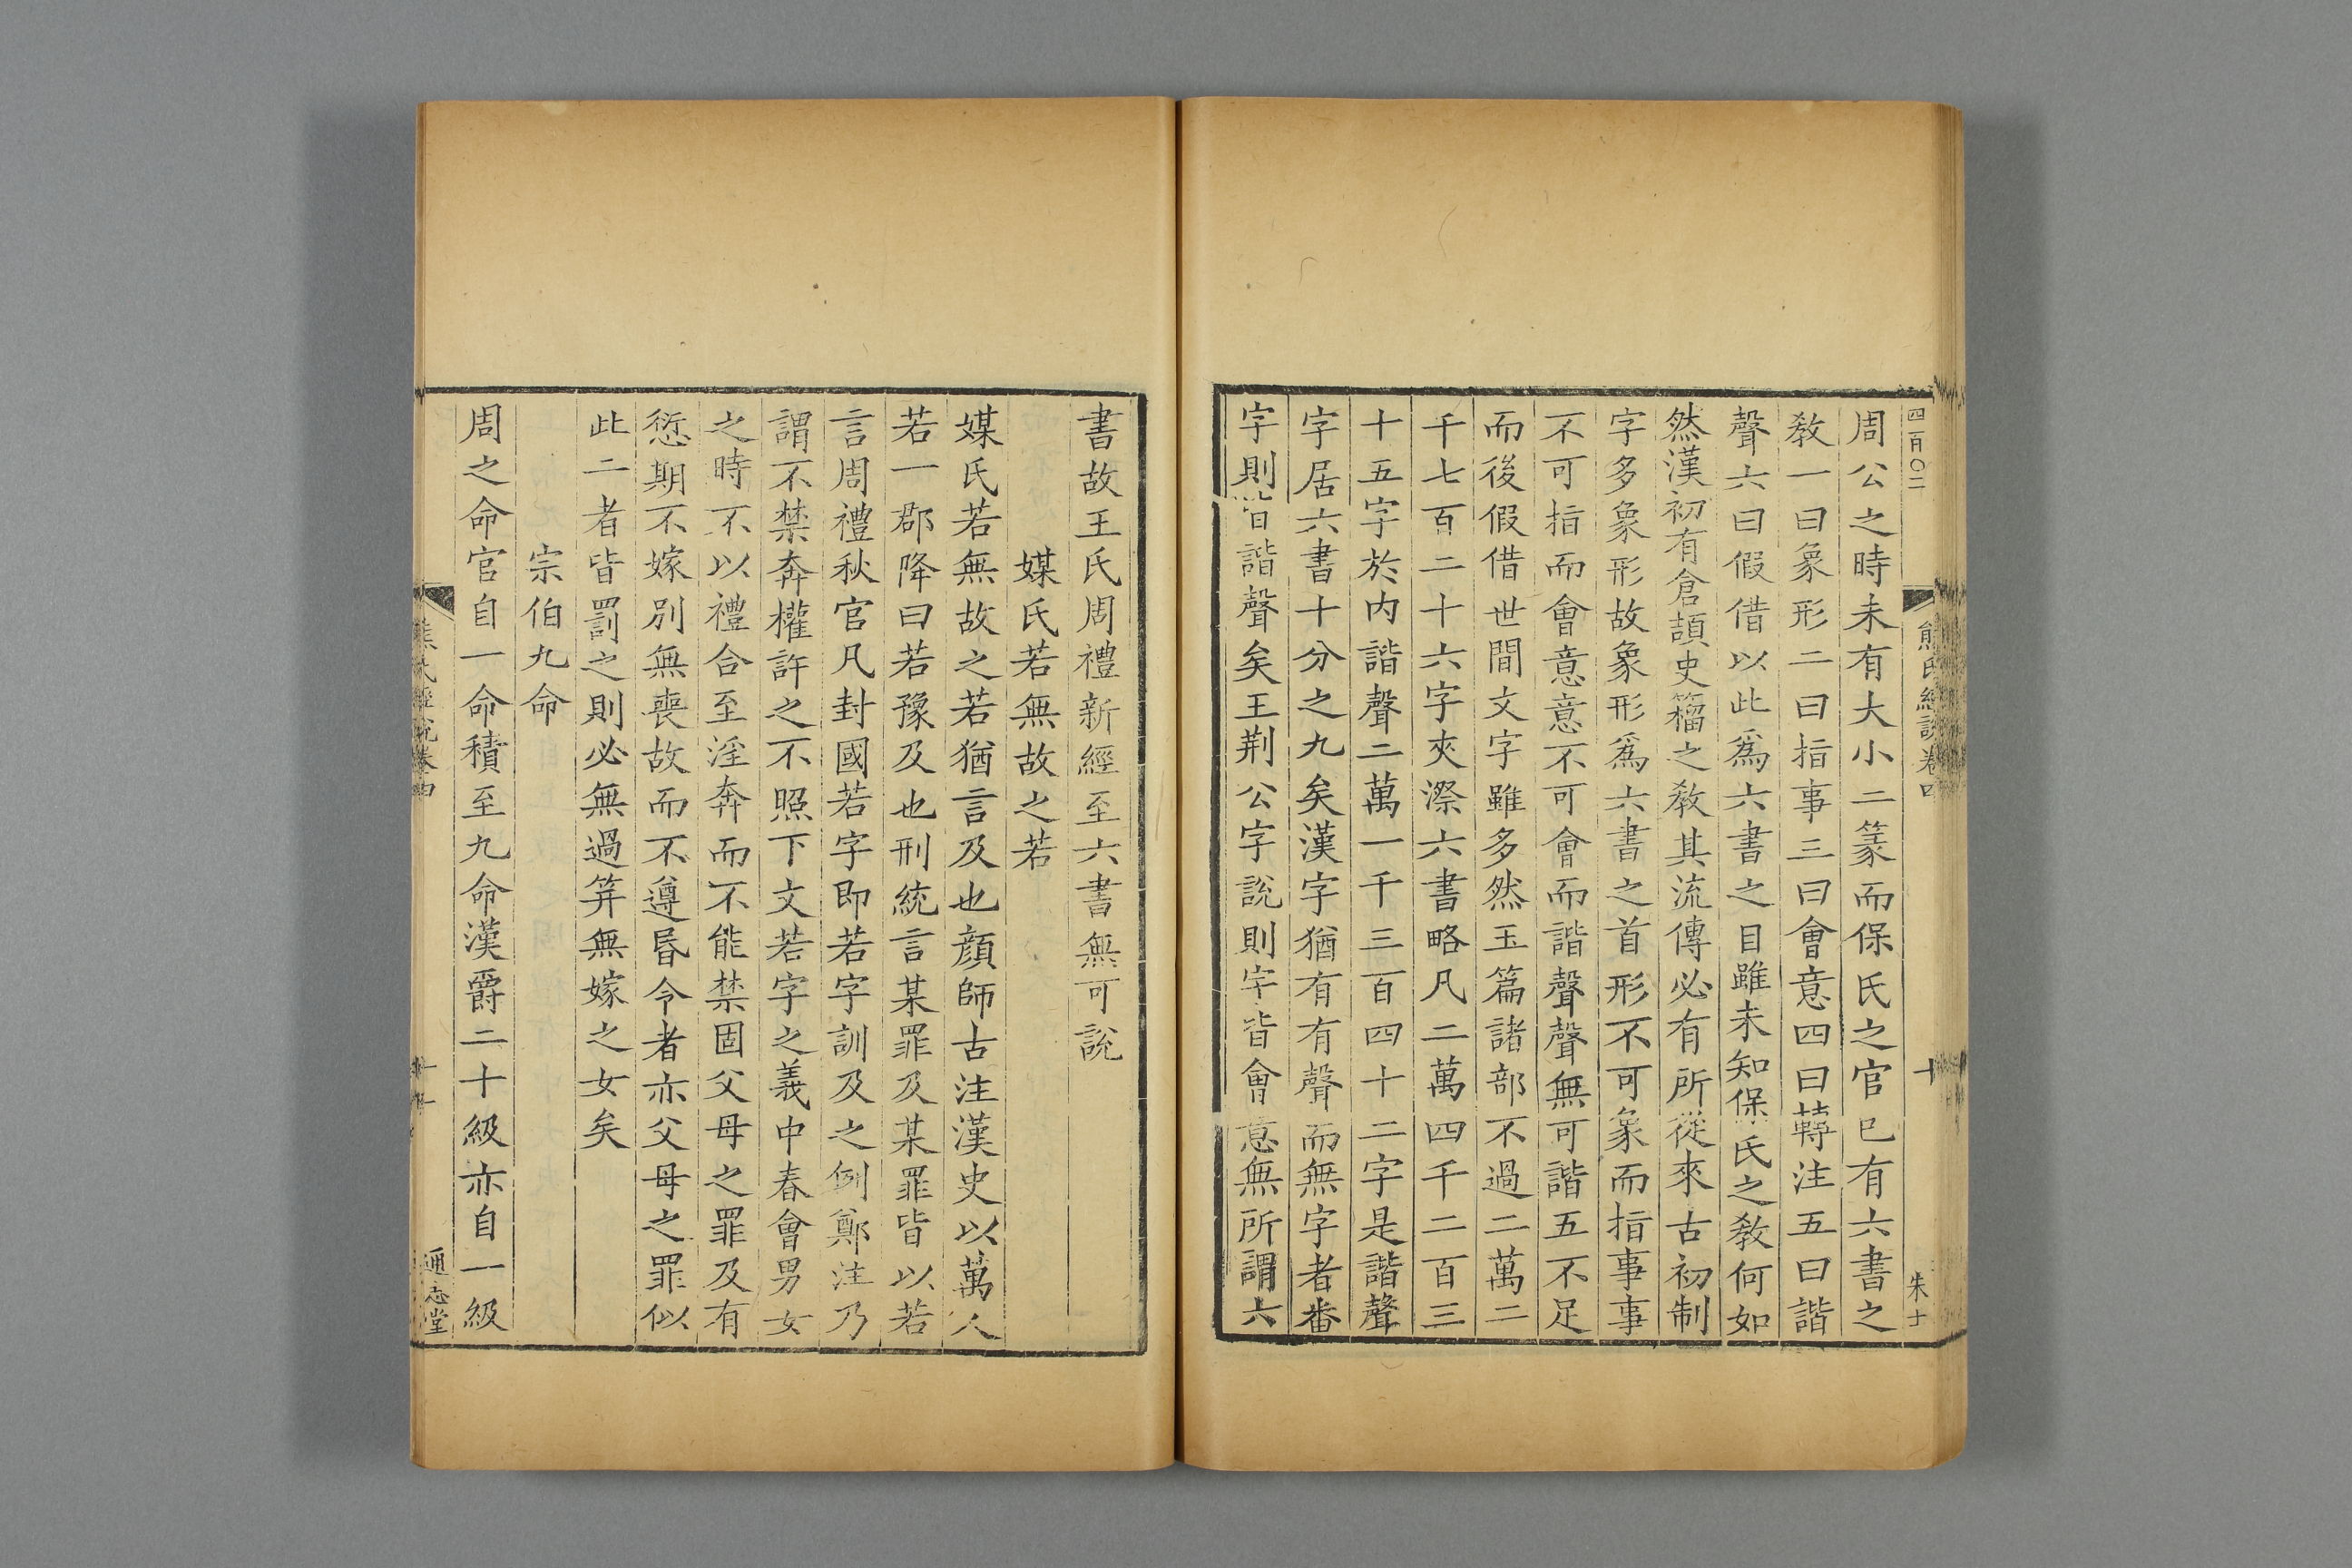 四百〇二
熊氏經說卷四
十
朱士
周公之時未有大小二篆而保氏之官已有六書之
教一曰象形二曰指事三曰會意四曰轉注五曰諧
聲六曰假借以此爲六書之目雖未知保氏之教何如
然漢初有倉頡史籒之教其流傳必有所從來古初制
字多象形故象形爲六書之首形不可象而指事事
不可指而會意意不可會而諧聲聲無可諧五不足
而後假借世間文字雖多然玉篇諸部不過二萬二
千七百二十六字夾漈六書略凡二萬四千二百三
十五字於内諧聲二萬一千三百四十二字是諧聲
字居六書十分之九矣漢字猶有有聲而無字者番
字則皆諧聲矣王荆公字說則字皆會意無所謂六
書故王氏周禮新經至六書無可說
媒氏若無故之若
媒氏若無故之若猶言及也顔師古注漢史以萬人
若一郡降曰若豫及也刑統言某罪及某罪皆以若
言周禮秋官凡封國若字即若字訓及之例鄭注乃
謂不禁奔權許之不照下文若字之義中春會男女
之時不以禮合至淫奔而不能禁固父母之罪及有
愆期不嫁別無喪故而不遵昏令者亦父母之罪似
此二者皆罰之則必無過笄無嫁之女矣
宗伯九命
周之命官自一命積至九命漢爵二十級亦自一級
熊氏經說卷四
十一
通志堂